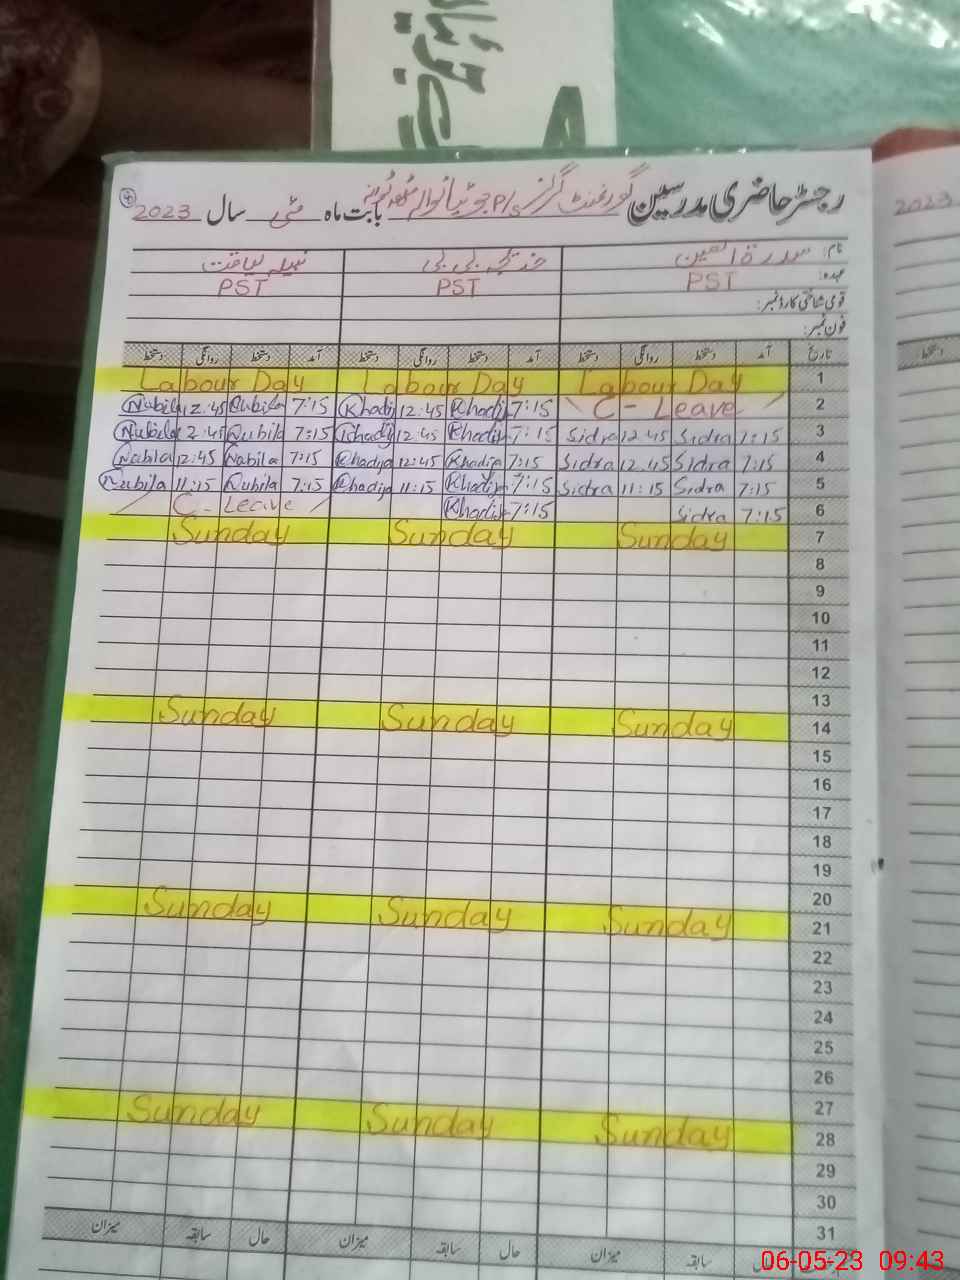 رجسٹر حاضری مدرسین گورنمنٹ گرلز P/S بابت ماہ مئی سال 2023
2023
نام: سدرۃ المین خدیجہ بی بی نبیلہ لیاقت
عہدہ: PST PST PST
قومی شناختی کارڈ نمبر:
فون نمبر:
تاریخ آمد دستخط روانگی دستخط آمد دستخط روانگی دستخط آمد دستخط روانگی دستخط
دستخط
Labour Day Labour Day Labour Day 1
Nabila 12:45 Nubila 7:15 Khadij 12:45 Khadij 7:15 C - Leave 2
Nubila 2:45 Nubila 7:15 Khadij 12:45 Khadij 7:15 Sidra 12:45 Sidra 7:15 3
Nabla 12:45 Nabila 7:15 Khadija 12:45 Khadija 7:15 Sidra 12:45 Sidra 7:15 4
Nubila 11:15 Nubila 7:15 Khadija 11:15 Khadij 7:15 Sidra 11:15 Sidra 7:15 5
C - Leave Khadij 7:15 Sidra 7:15 6
Sunday Sunday Sunday 7
8
9
10
11
12
13
Sunday Sunday Sunday 14
15
16
17
18
19
20
Sunday Sunday Sunday 21
22
23
24
25
26
27
Sunday Sunday Sunday 28
29
30
31
حال سابقہ میزان حال سابقہ میزان حال سابقہ میزان
06-05-23 09:43